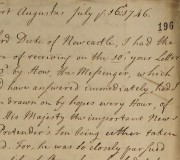 ort Augustus July ye 16: 1746.
196
rd Duke of Newcastle, I had the
n of receiving on the 10: your Letter
by How, the Messenger, which
d have answered immediately, had
n drawn on by hopes every Hour, of
His Majesty the important News
Pretender's Son being either taken
d. For he was so closely pursued